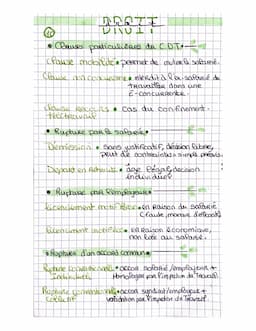 DROIT
• Clauses particulières du CDT •
Clause mobilité • permet de muter le salarié.
Clause non concurrence • interdit à l'ex-salarié de
travailler dans une
E-concurrente.
clause recours • cas du confinement.
télétravail
• Rupture par le salarié •
Démission • sans justificatif, décision libre,
peut de contraintes simple préavis.
Départ en Retraite • âge légal, décision
individuel
• Rupture par l'employeur •
Licenciement motif perso • en Raison du salarié
(faute, manque d'efficacité)
Licenciement motif éco • en Raison économique,
non liée au salarié.
• Rupture d'un accord commun •
Rupture conventionnelle • accord salarié/employeur +
Individuelle homologuée par l'inspection du Travail.
Rupture conventionnelle • accord syndicat/employeur +
collectif validation par l'inspection du Travail.